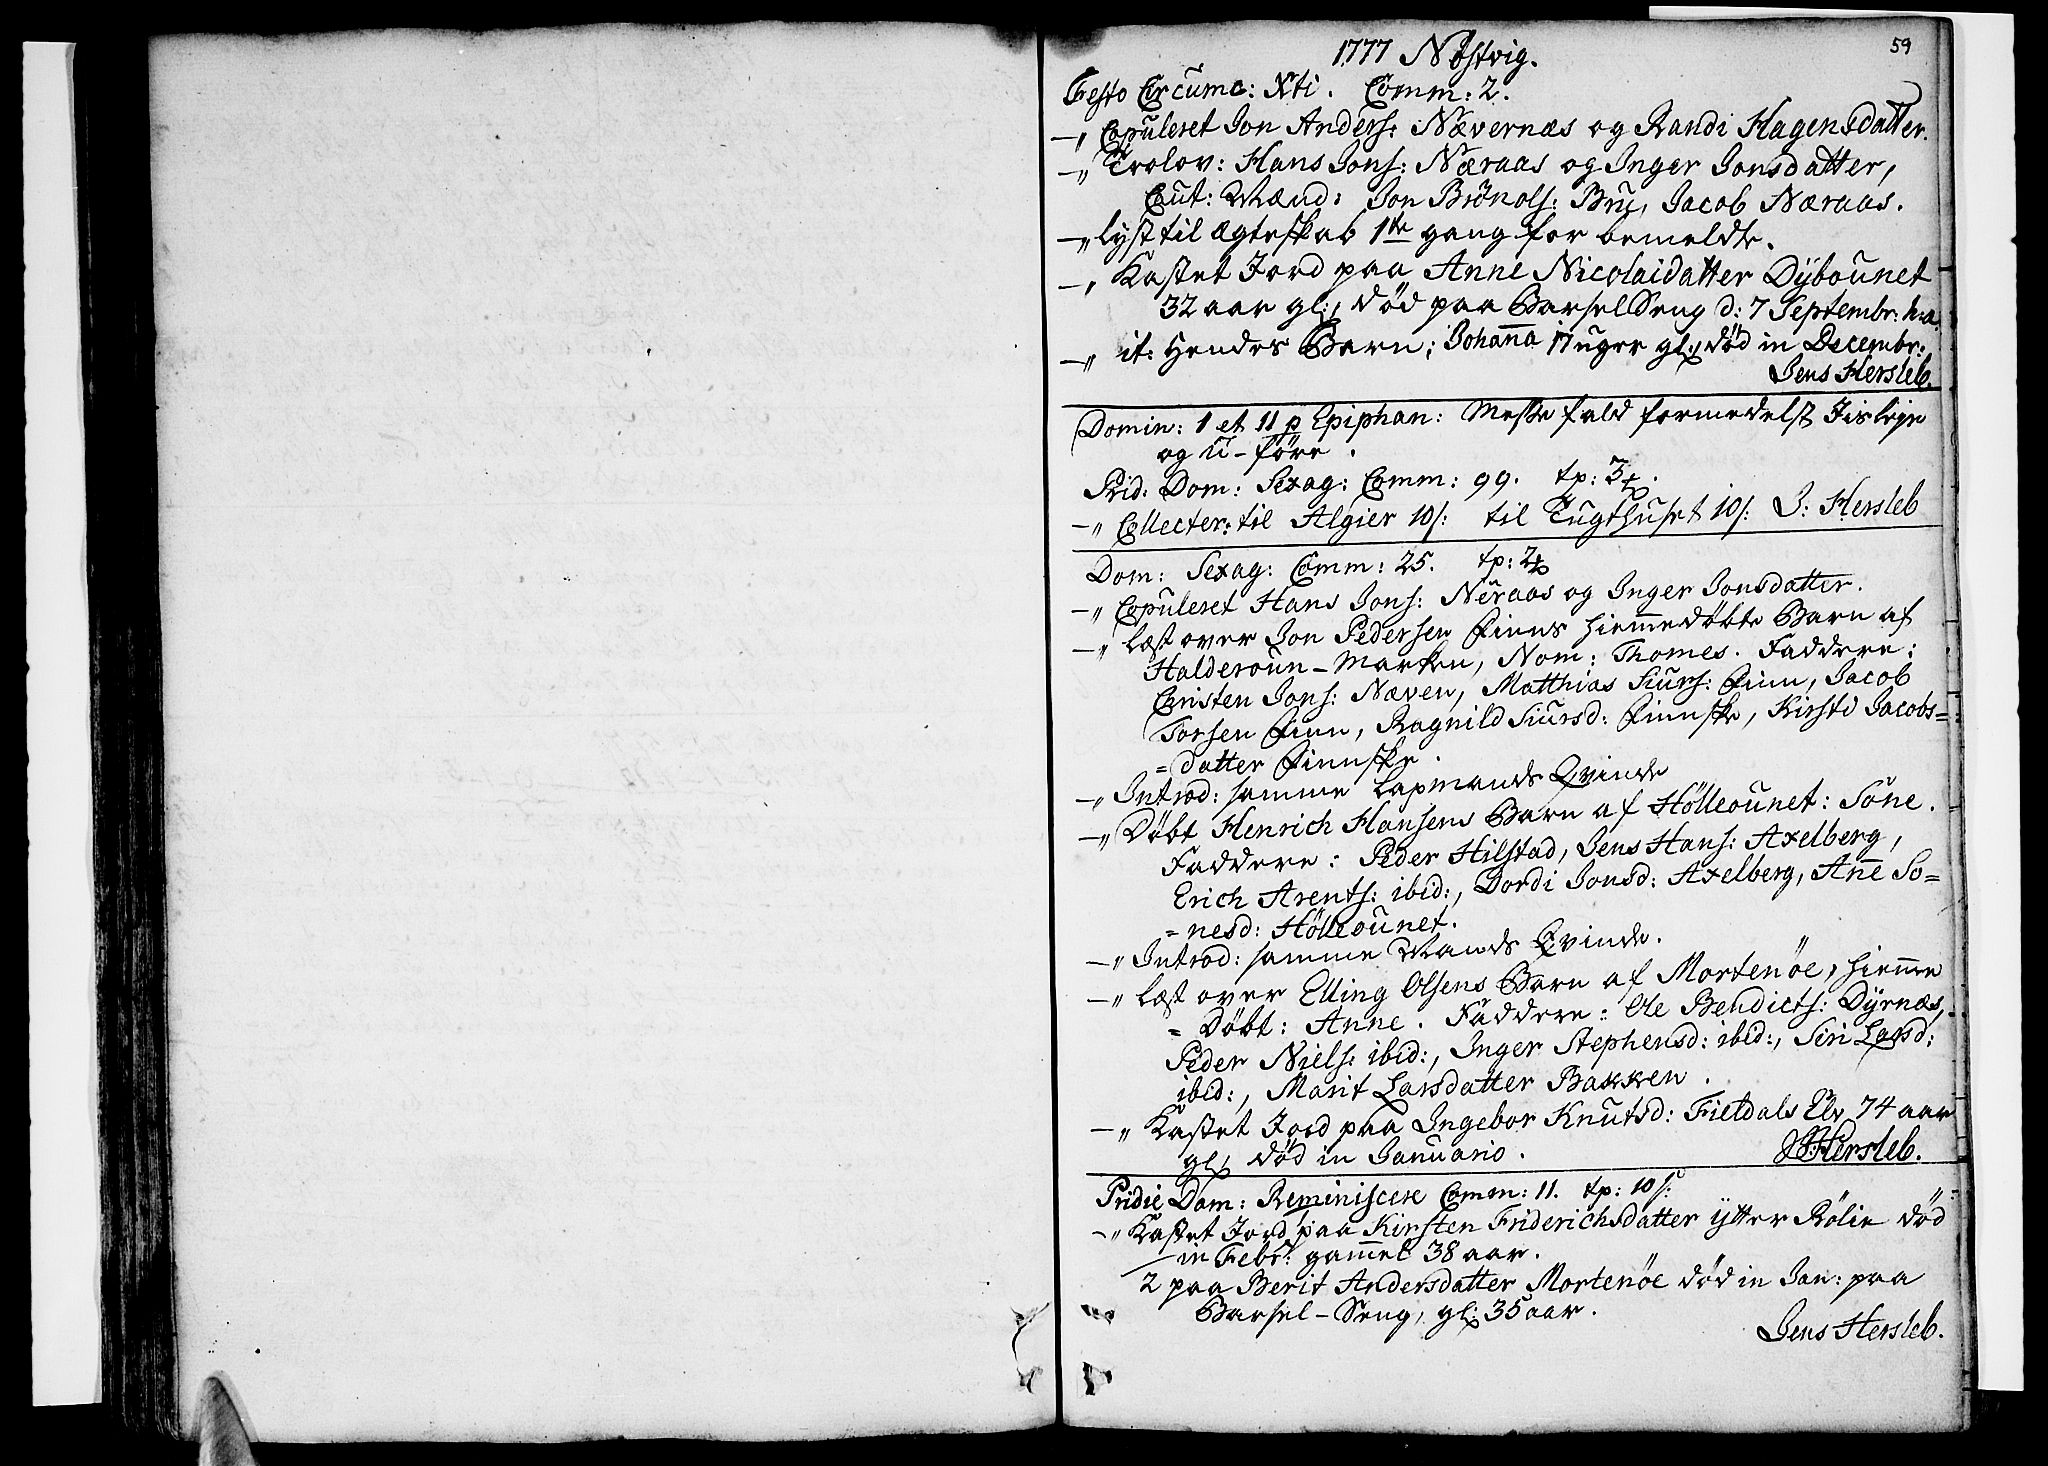 59
1777 Nøstvig.
Festo Circumc: Xti. Comm: 2.
—„ Copuleret Jon Anders: Nævernæs og Randi Hagensdatter.
—„ Trolov: Hans Jons: Næraas og Inger Jonsdatter,
Caut: Mænd: Jon Brønols: Bru, Jacob Næraas.
—„ lyst til Ægteskab 1te gang for bemeldte.
—„ Kastet Jord paa Anne Nicolaidatter Dÿbounet
32 aar gl:, død paa BarselSeng d: 7 Septembr: h:a.
—„ it: Hendes Barn; Johanna 17 uger gl:, død in Decembr:
Jens Hersleb.
Domin: 1 et 11 p Epiphan: Messefald formedelst Jisleje
og U-føre.
Prid: Dom: Sexag: Comm: 99. tp: 3
—„ Collecter: til Algier 10/: til Tugthuset 10/: J: Hersleb
Dom: Sexag: Comm: 25. tp: 2
—„ Copuleret Hans Jons: Neraas og Inger Jonsdatter.
—„ læst over Jon Pedersen Finns hiemmedøbte Barn af
Halderoun-Marken, Nom: Thomes. Faddere:
Christen Jons: Næven, Matthias Siurs: Finn, Jacob
Torsen Finn, Ragnild Siursd: Finnske, Kirsti Jacobs=
=datter Finnske.
—„ Introd: samme Lapmands Qvinde
—„ Døbt Henrich Hansens Barn af Hölleounet: Söne.
Faddere: Peder Hilstad, Jens Hans: Axelberg,
Erich Arents: ibid:, Dordi Jonsd: Axelberg, Anne So=
=nesd: Hölleounet.
—„ Introd: samme Mands Qvinde.
—„ læst over Elling Olsens Barn af Mortenöe, hiemme
=Døbt: Anne. Faddere: Ole Bendicts: Dÿrnæs,
Peder Niels: ibid:, Inger Stephensd: ibid:, Siri Larsd:
ibid:, Marit Larsdatter Bakken.
—„ Kastet Jord paa Ingebor Knutsd: Fieldals Elv 74 aar
gl: død in Januario.
JHersleb.
Pridie Dom: Reminiscere Comm: 11. tp: 10/:
—„ Kastet Jord paa Kirsten Friderichsdatter ÿtter Rölie død
in Febr: gammel 38 aar.
2 paa Berit Andersdatter Mortenöe død in Jan: paa
Barsel-Seng, gl: 35 aar.
Jens Hersleb.